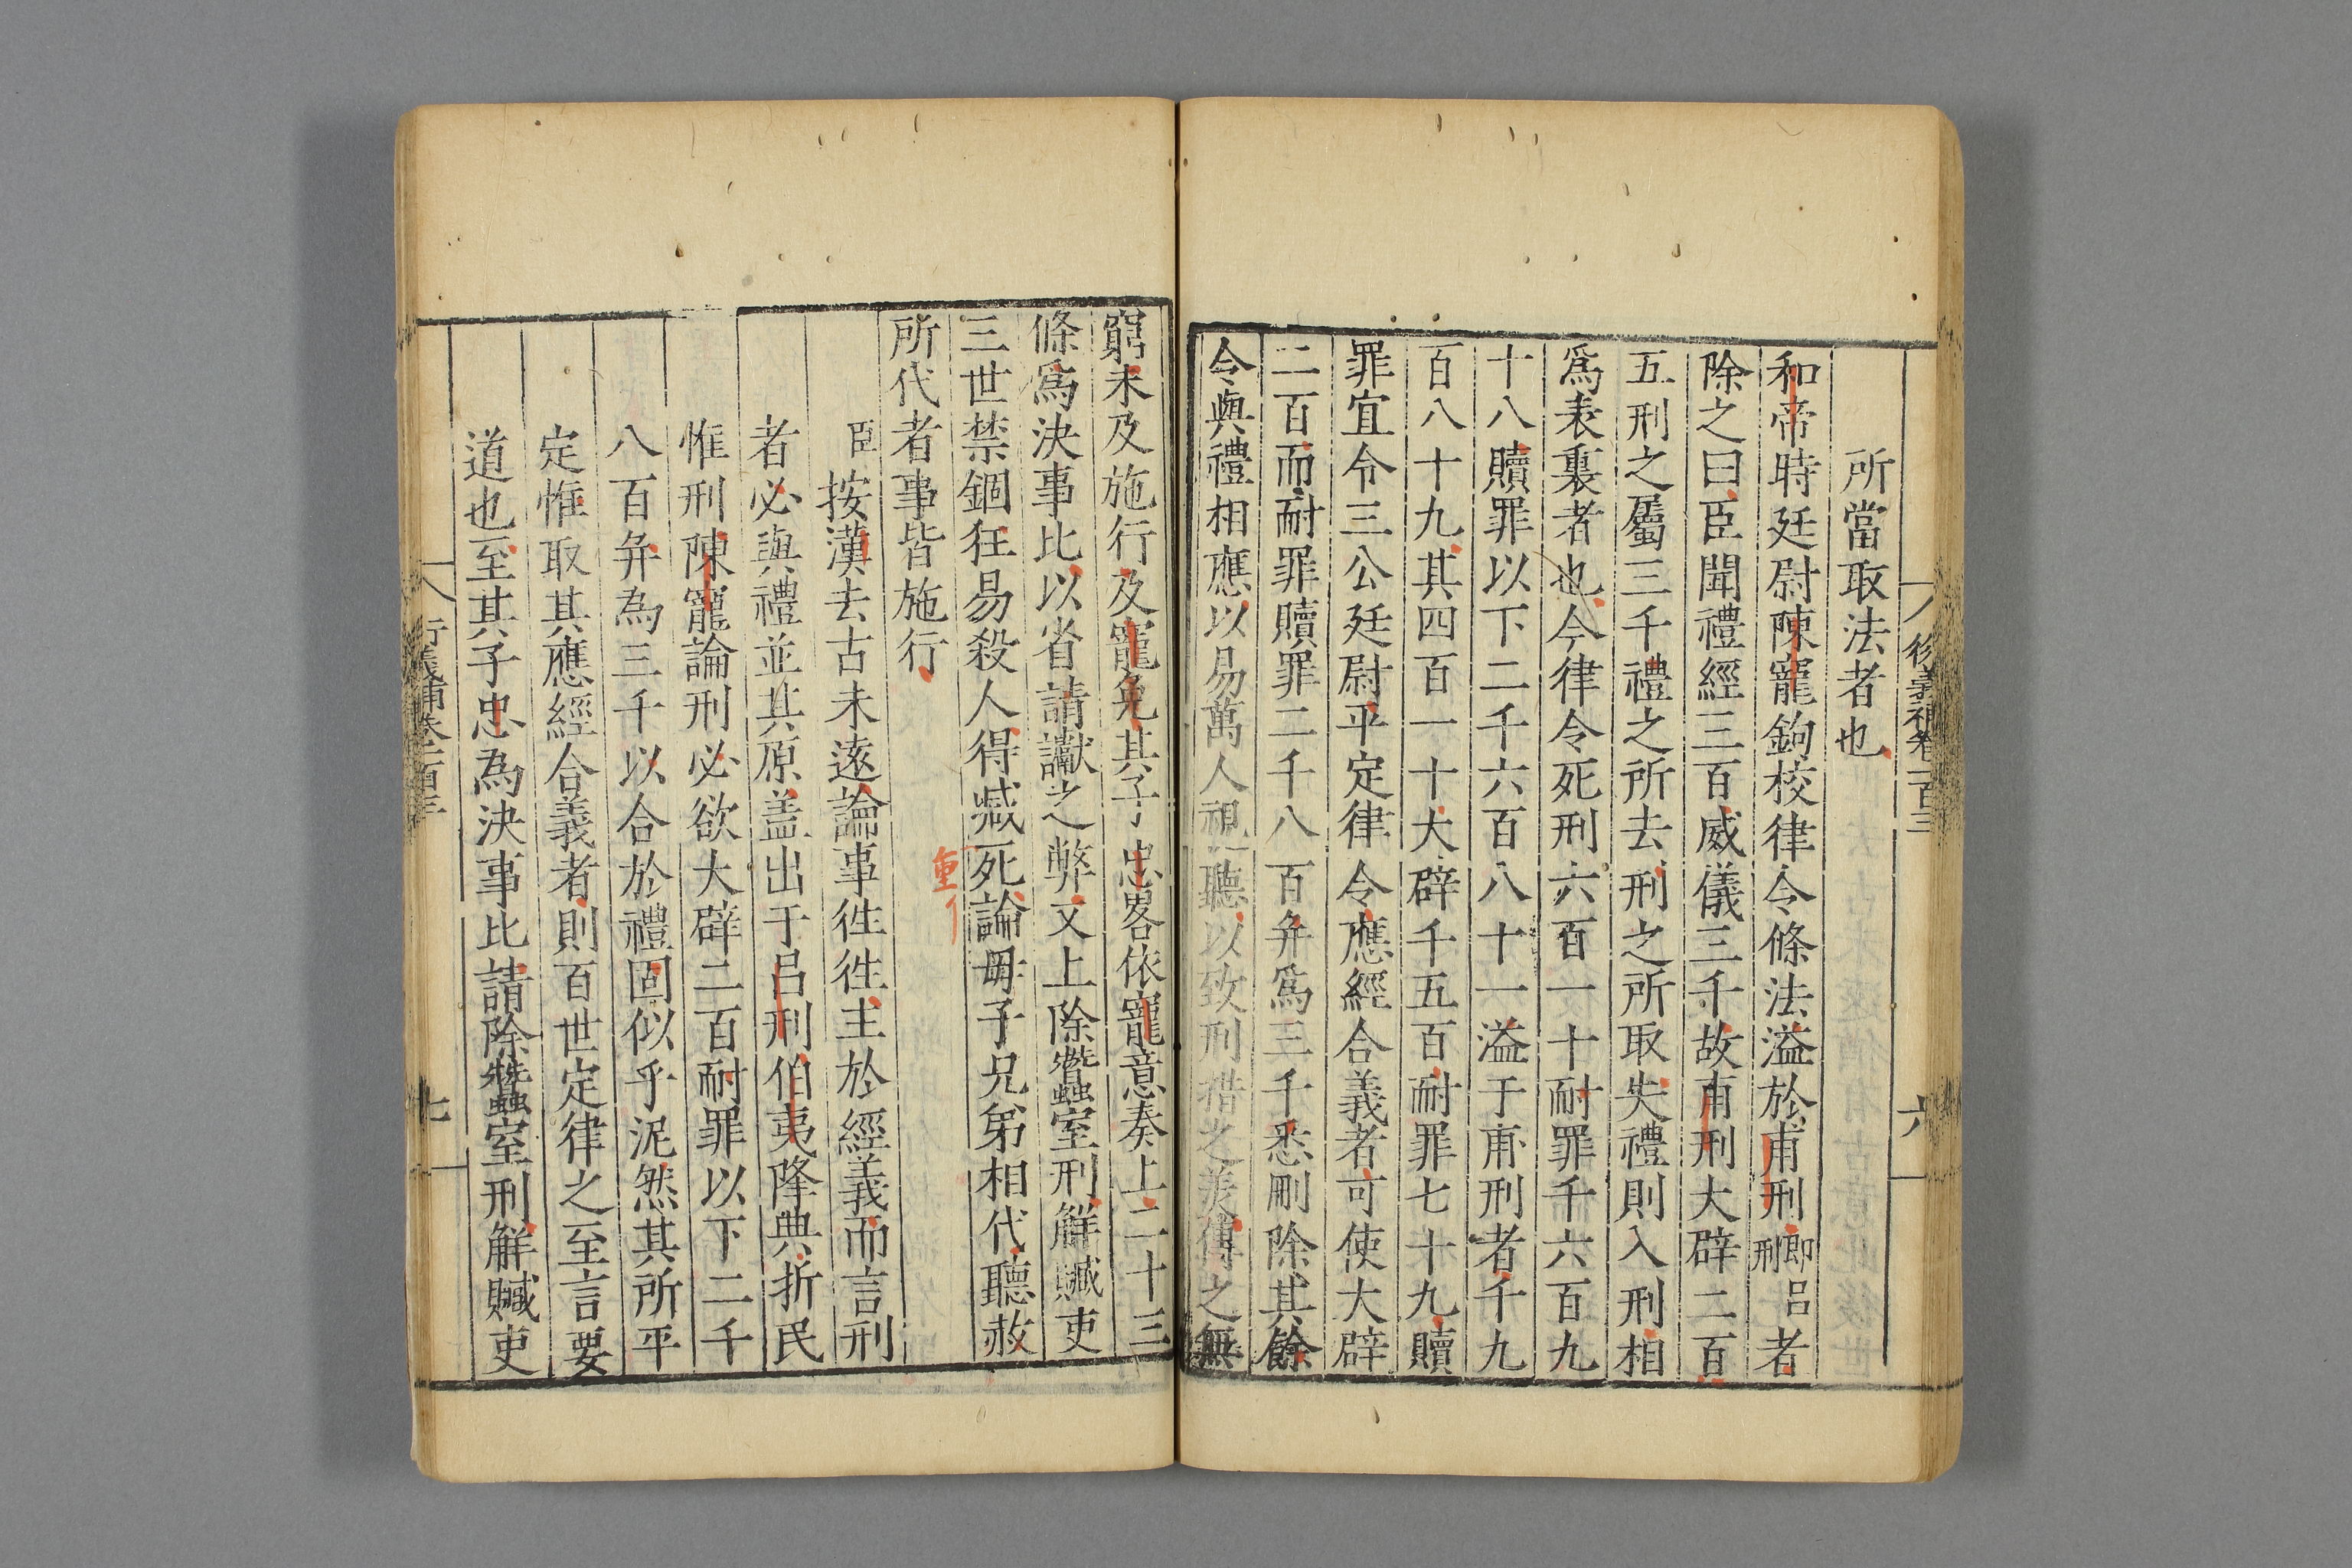 所當取法者也
和帝時廷尉陳寵鉤校律令條法溢於甫刑即呂刑者
除之曰臣聞禮經三百威儀三千故甫刑大辟二百
五刑之屬三千禮之所去刑之所取失禮則入刑相
爲表裏者也今律令死刑六百一十耐罪千六百九
十八贖罪以下二千六百八十一溢于甫刑者千九
百八十九其四百一十大辟千五百耐罪七十九贖
罪宜令三公廷尉平定律令應經合義者可使大辟
二百而耐罪贖罪二千八百并爲三千悉刪除其餘
令與禮相應以易萬人視聽以致刑措之美傳之無
窮未及施行及寵免其子忠畧依寵意奏上二十三
條爲決事比以省請讞之弊又上除蠶室刑解贓吏
三世禁錮狂易殺人得減死論母子兄弟相代聽赦
所代者事皆施行
重
臣按漢去古未遠論事徃徃主於經義而言刑
者必與禮並其原盖出于呂刑伯夷降典折民
惟刑陳寵論刑必欲大辟二百耐罪以下二千
八百并為三千以合於禮固似乎泥然其所平
定惟取其應經合義者則百世定律之至言要
道也至其子忠為決事比請除蠶室刑解贓吏
衍義補卷一百三
六
衍義補卷一百三
七